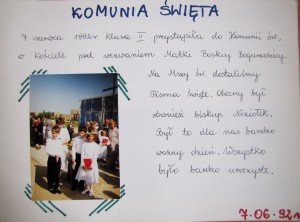 KOMUNIA ŚWIĘTA
7 czerwca 1992r klasa II przystąpiła do Komunii św.
w Kościele pod wezwaniem Matki Boskiej
Na Mszy św. dostaliśmy
Pisma Święte. Obecny był
również biskup
Był to dla nas bardzo
ważny dzień. Wszystko
było bardzo uroczyste.
7.06.92r